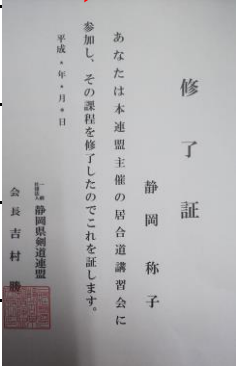 修了証
静岡称子
あなたは本連盟主催の居合道講習会に
参加し、その課程を修了したのでこれを証します。
平成*年*月*日
一般社団法人 静岡県剣道連盟
会長吉村